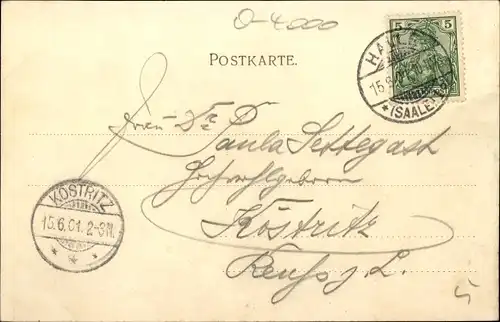 O-4000
POSTKARTE.
5 5
HALLE
15.6.01
*(SAALE)
Frau Dr.
Paula Settegast
Hochwohlgeboren
Köstritz
Reuss j. L.
KÖSTRITZ
15.6.01. 2-3N.